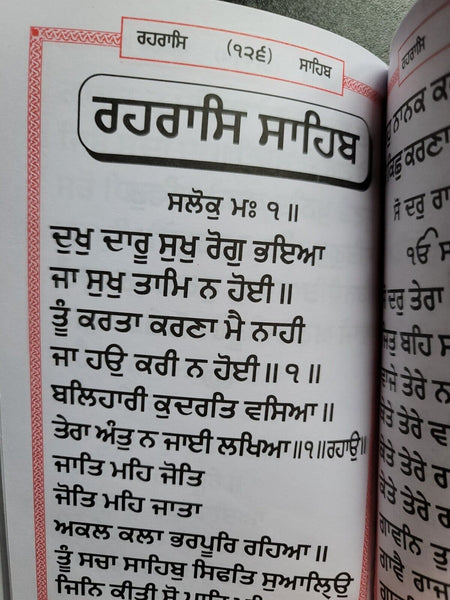 ਰਹਰਾਸਿ (੧੨੬) ਸਾਹਿਬ
ਰਹਰਾਸਿ ਸਾਹਿਬ
ਸਲੋਕੁ ਮਃ ੧ ॥
ਦੁਖੁ ਦਾਰੂ ਸੁਖੁ ਰੋਗੁ ਭਇਆ
ਜਾ ਸੁਖੁ ਤਾਮਿ ਨ ਹੋਈ ॥
ਤੂੰ ਕਰਤਾ ਕਰਣਾ ਮੈ ਨਾਹੀ
ਜਾ ਹਉ ਕਰੀ ਨ ਹੋਈ ॥ ੧ ॥
ਬਲਿਹਾਰੀ ਕੁਦਰਤਿ ਵਸਿਆ ॥
ਤੇਰਾ ਅੰਤੁ ਨ ਜਾਈ ਲਖਿਆ ॥੧॥ਰਹਾਉ॥
ਜਾਤਿ ਮਹਿ ਜੋਤਿ
ਜੋਤਿ ਮਹਿ ਜਾਤਾ
ਅਕਲ ਕਲਾ ਭਰਪੂਰਿ ਰਹਿਆ ॥
ਤੂੰ ਸਚਾ ਸਾਹਿਬੁ ਸਿਫਤਿ ਸੁਆਲਿ੍ਉ
ਜਿਨਿ ਕੀਤੀ ਸੋ ਪਾਰਿ
ਰਹਰਾਸਿ
ਨਾਨਕ
ਕਿਛੁ ਕਰਣਾ
ਸੋ ਦਰੁ ਰਾ
ੴ ਸ
ਸੋ ਦਰੁ ਤੇਰਾ
ਜਿਤੁ ਬਹਿ ਸ
ਵਾਜੇ ਤੇਰੇ ਨ
ਕੇਤੇ ਤੇਰੇ ਵਾ
ਕੇਤੇ ਤੇਰੇ ਰ
ਕੇਤੇ ਤੇਰੇ
ਗਾਵਨਿ ਤੁ
ਗਾਵੈ ਰਾਜ